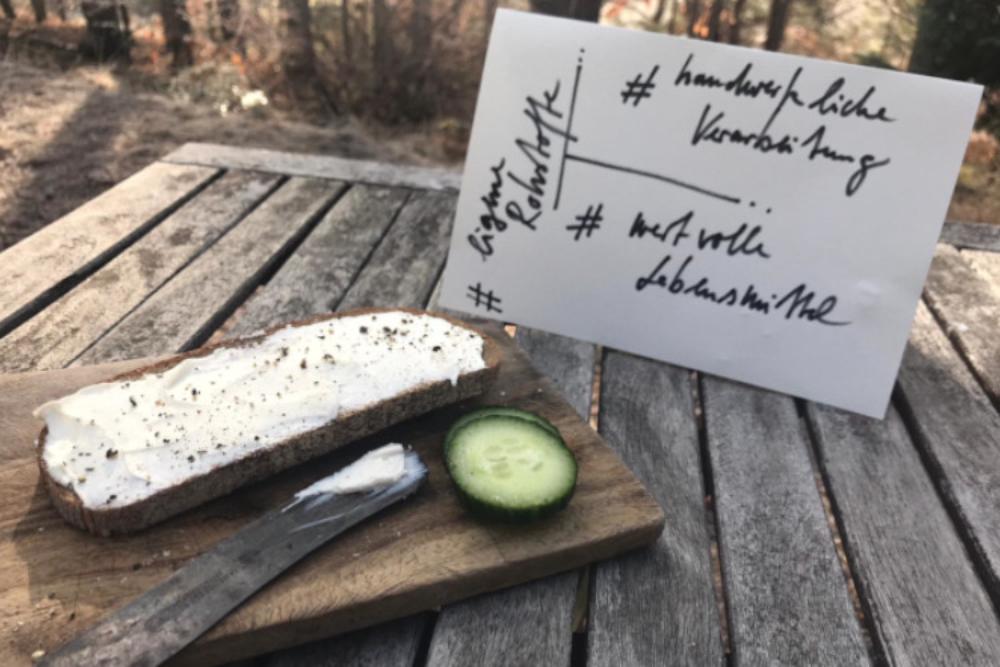 # handwerkliche
Verarbeitung
# eigene
Rohstoffe
# wertvolle
Lebensmittel